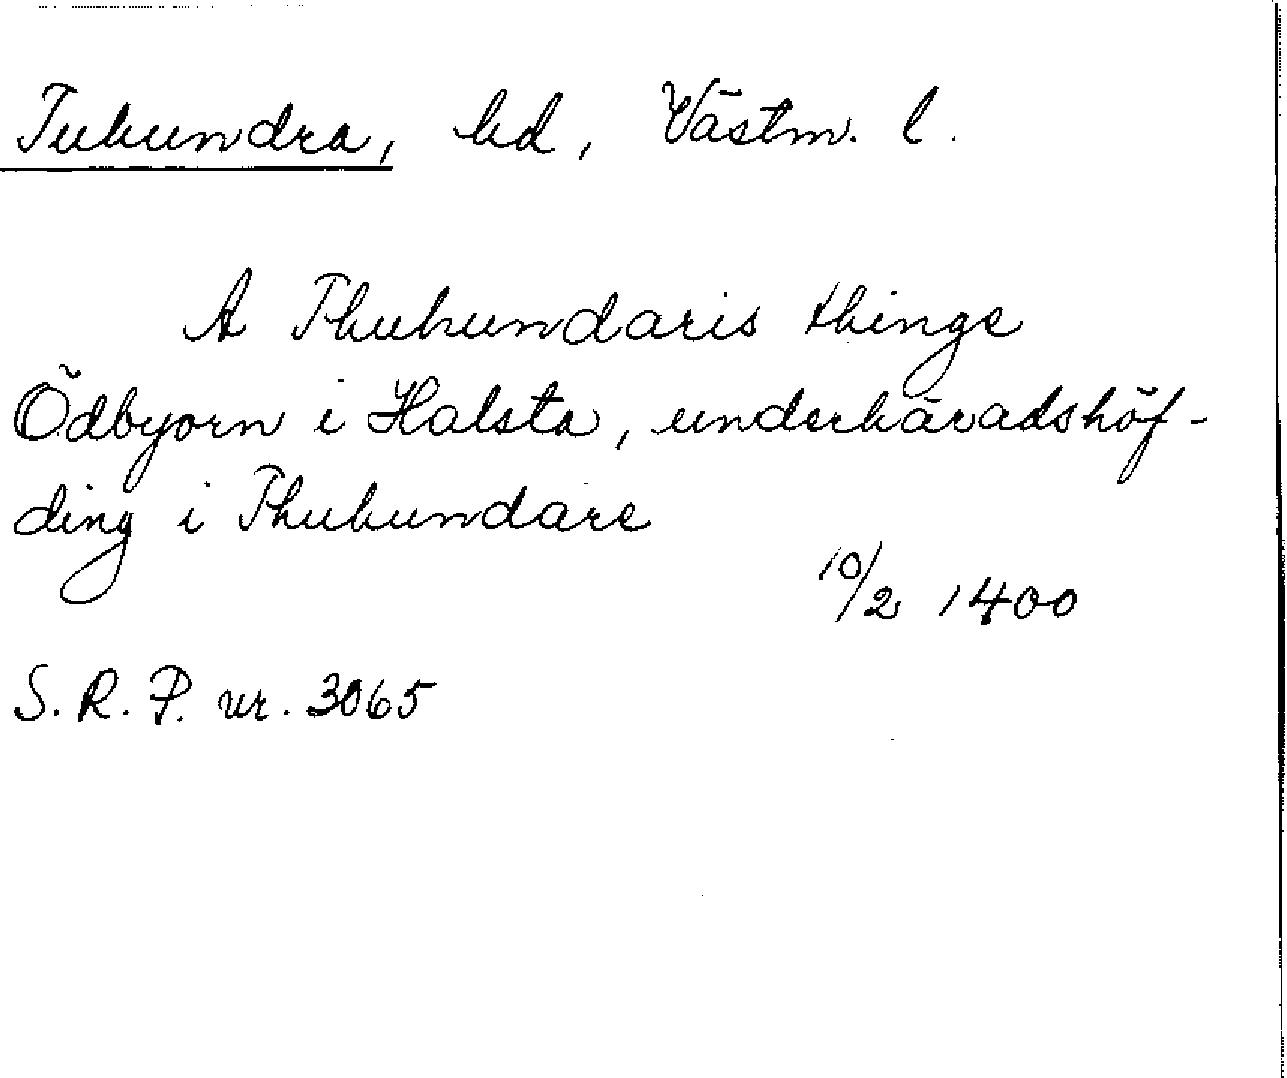 Tuhundra, hd, Västm. l.
A Thuhundaris thinge
Ödbyorn i Halsta, underhäradshöf-
ding i Thuhundare
10/2 1400
S. R. P. nr. 3065